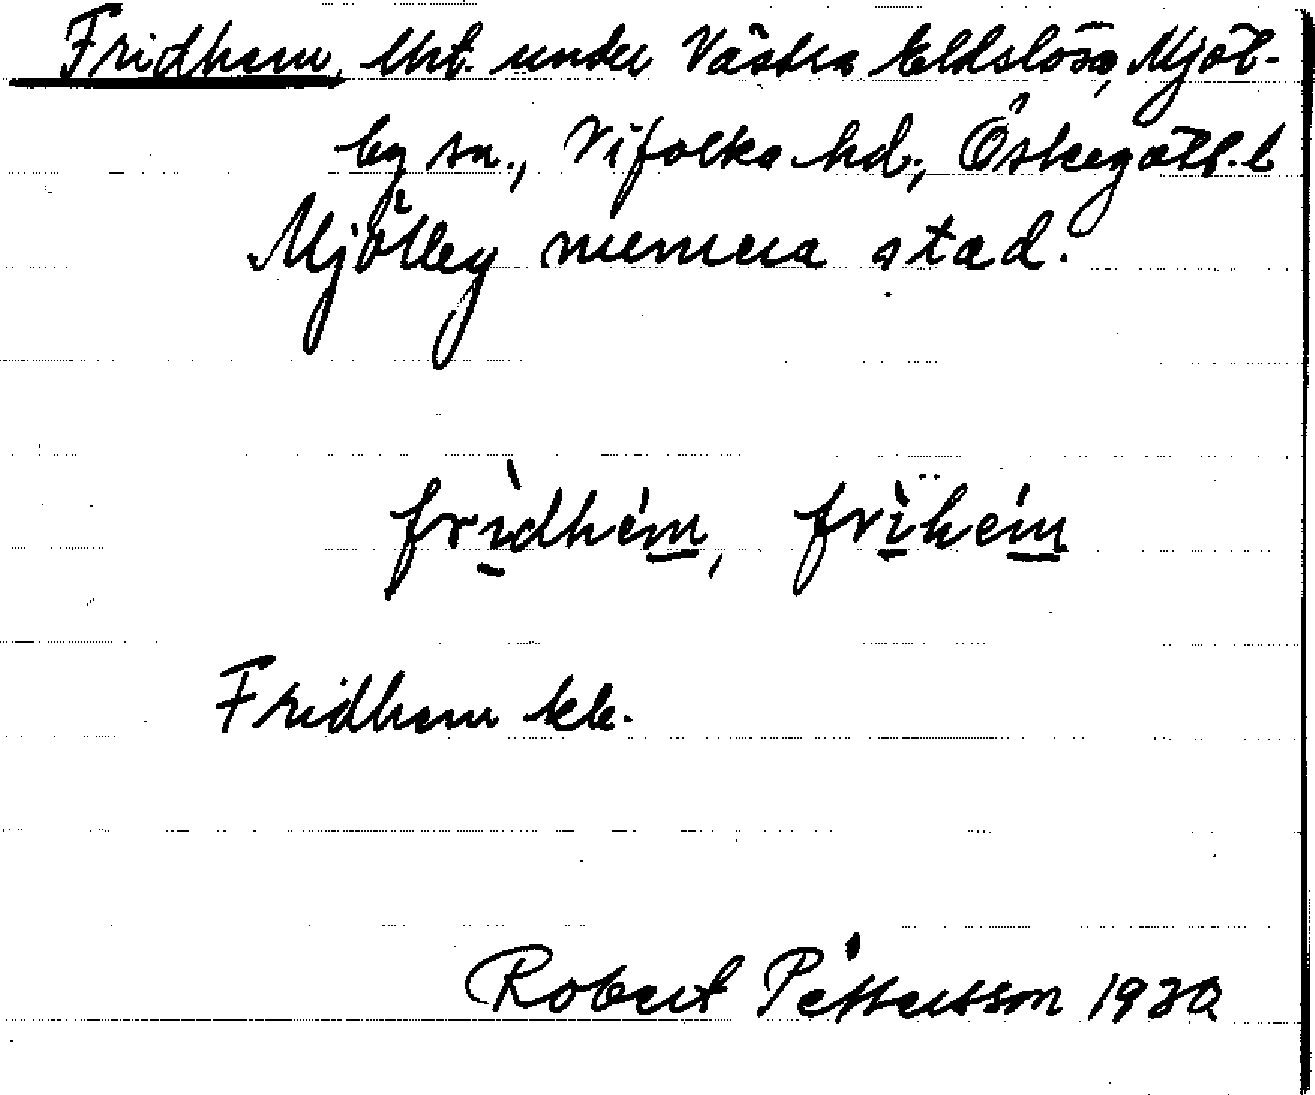 Fridhem, lht. under Västra Eldslösa, Mjöl-
by sn., Vifolka hd., Östergötl. l
Mjölby numera stad.
fridhem, frihem
Fridhem kk.
Robert Pettersson 1930